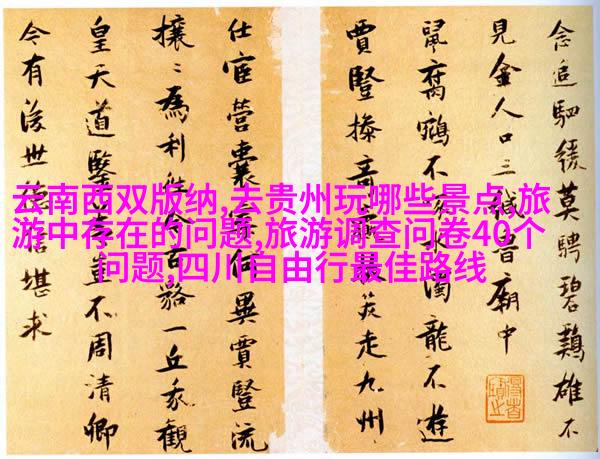 念追駟緩莫騁碧鷄雄不
見金人口三緘吾廟中
鼠腐鵷不水濁龍不遊
賈豎操奇笑走九州
仕宦營囊何異賈豎流
攘〻為利貉一丘我觀
皇天道不周清卿
今有後世堪求
云南西双版纳,去贵州玩哪些景点,旅
游中存在的问题,旅游调查问卷40个
问题,四川自由行最佳路线